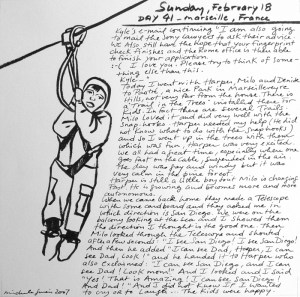 Sunday, February 18
DAY 41 - Marseille, France
Kyle's e-mail continuing "I am also going
to email the Sony Lawyers & ask their advice
We Also still had the hope that your fingerprint
check finishes and the Rome office is then able
to finish your application.
I love you - Please try to think of some-
thing else than this.
Kyle -"
Today I went with Harper, Milo and Denise
to Pastré, a nice Park in Marseilleveyre
Hills, not very far from the house. There is
a Fil in the Trees installed there for
Kids and there are several Trails.
Milo Loved it and did very well with the
Snap hooks. Harper needed my help (He did
not know what to do with the snap hooks)
and so I went up in the trees with them
which was fun. Harper was very excited.
We all had a great time, especially when one
goes fast on the cable, suspended in the air.
The day was gray and windy but it was
very calm in the pine forest.
Harper is still a little boy but Milo is changing
fast. He is growing and becomes more and more
autonomous.
When we came back home they made a Telescope
with some cardboard and they asked me in
which direction is San Diego. We were on the
balcony looking at the sea and I showed them
the direction I thought is the good one. Then
Milo looked through the Telescope and shouted
after a few seconds: "I see Dad! I see San Diego!"
And then he added "I can see Dad, Harper, I can
see Dad, Look!" and he handed it to Harper who
also exclaimed "I can see San Diego, and I can
see Dad! Look mom!" And I looked and I said
"Yes! That is Amazing! I can see San Diego
And Dad!" And I did not know if I wanted
to cry or to Laugh - The Kids were happy.
2007